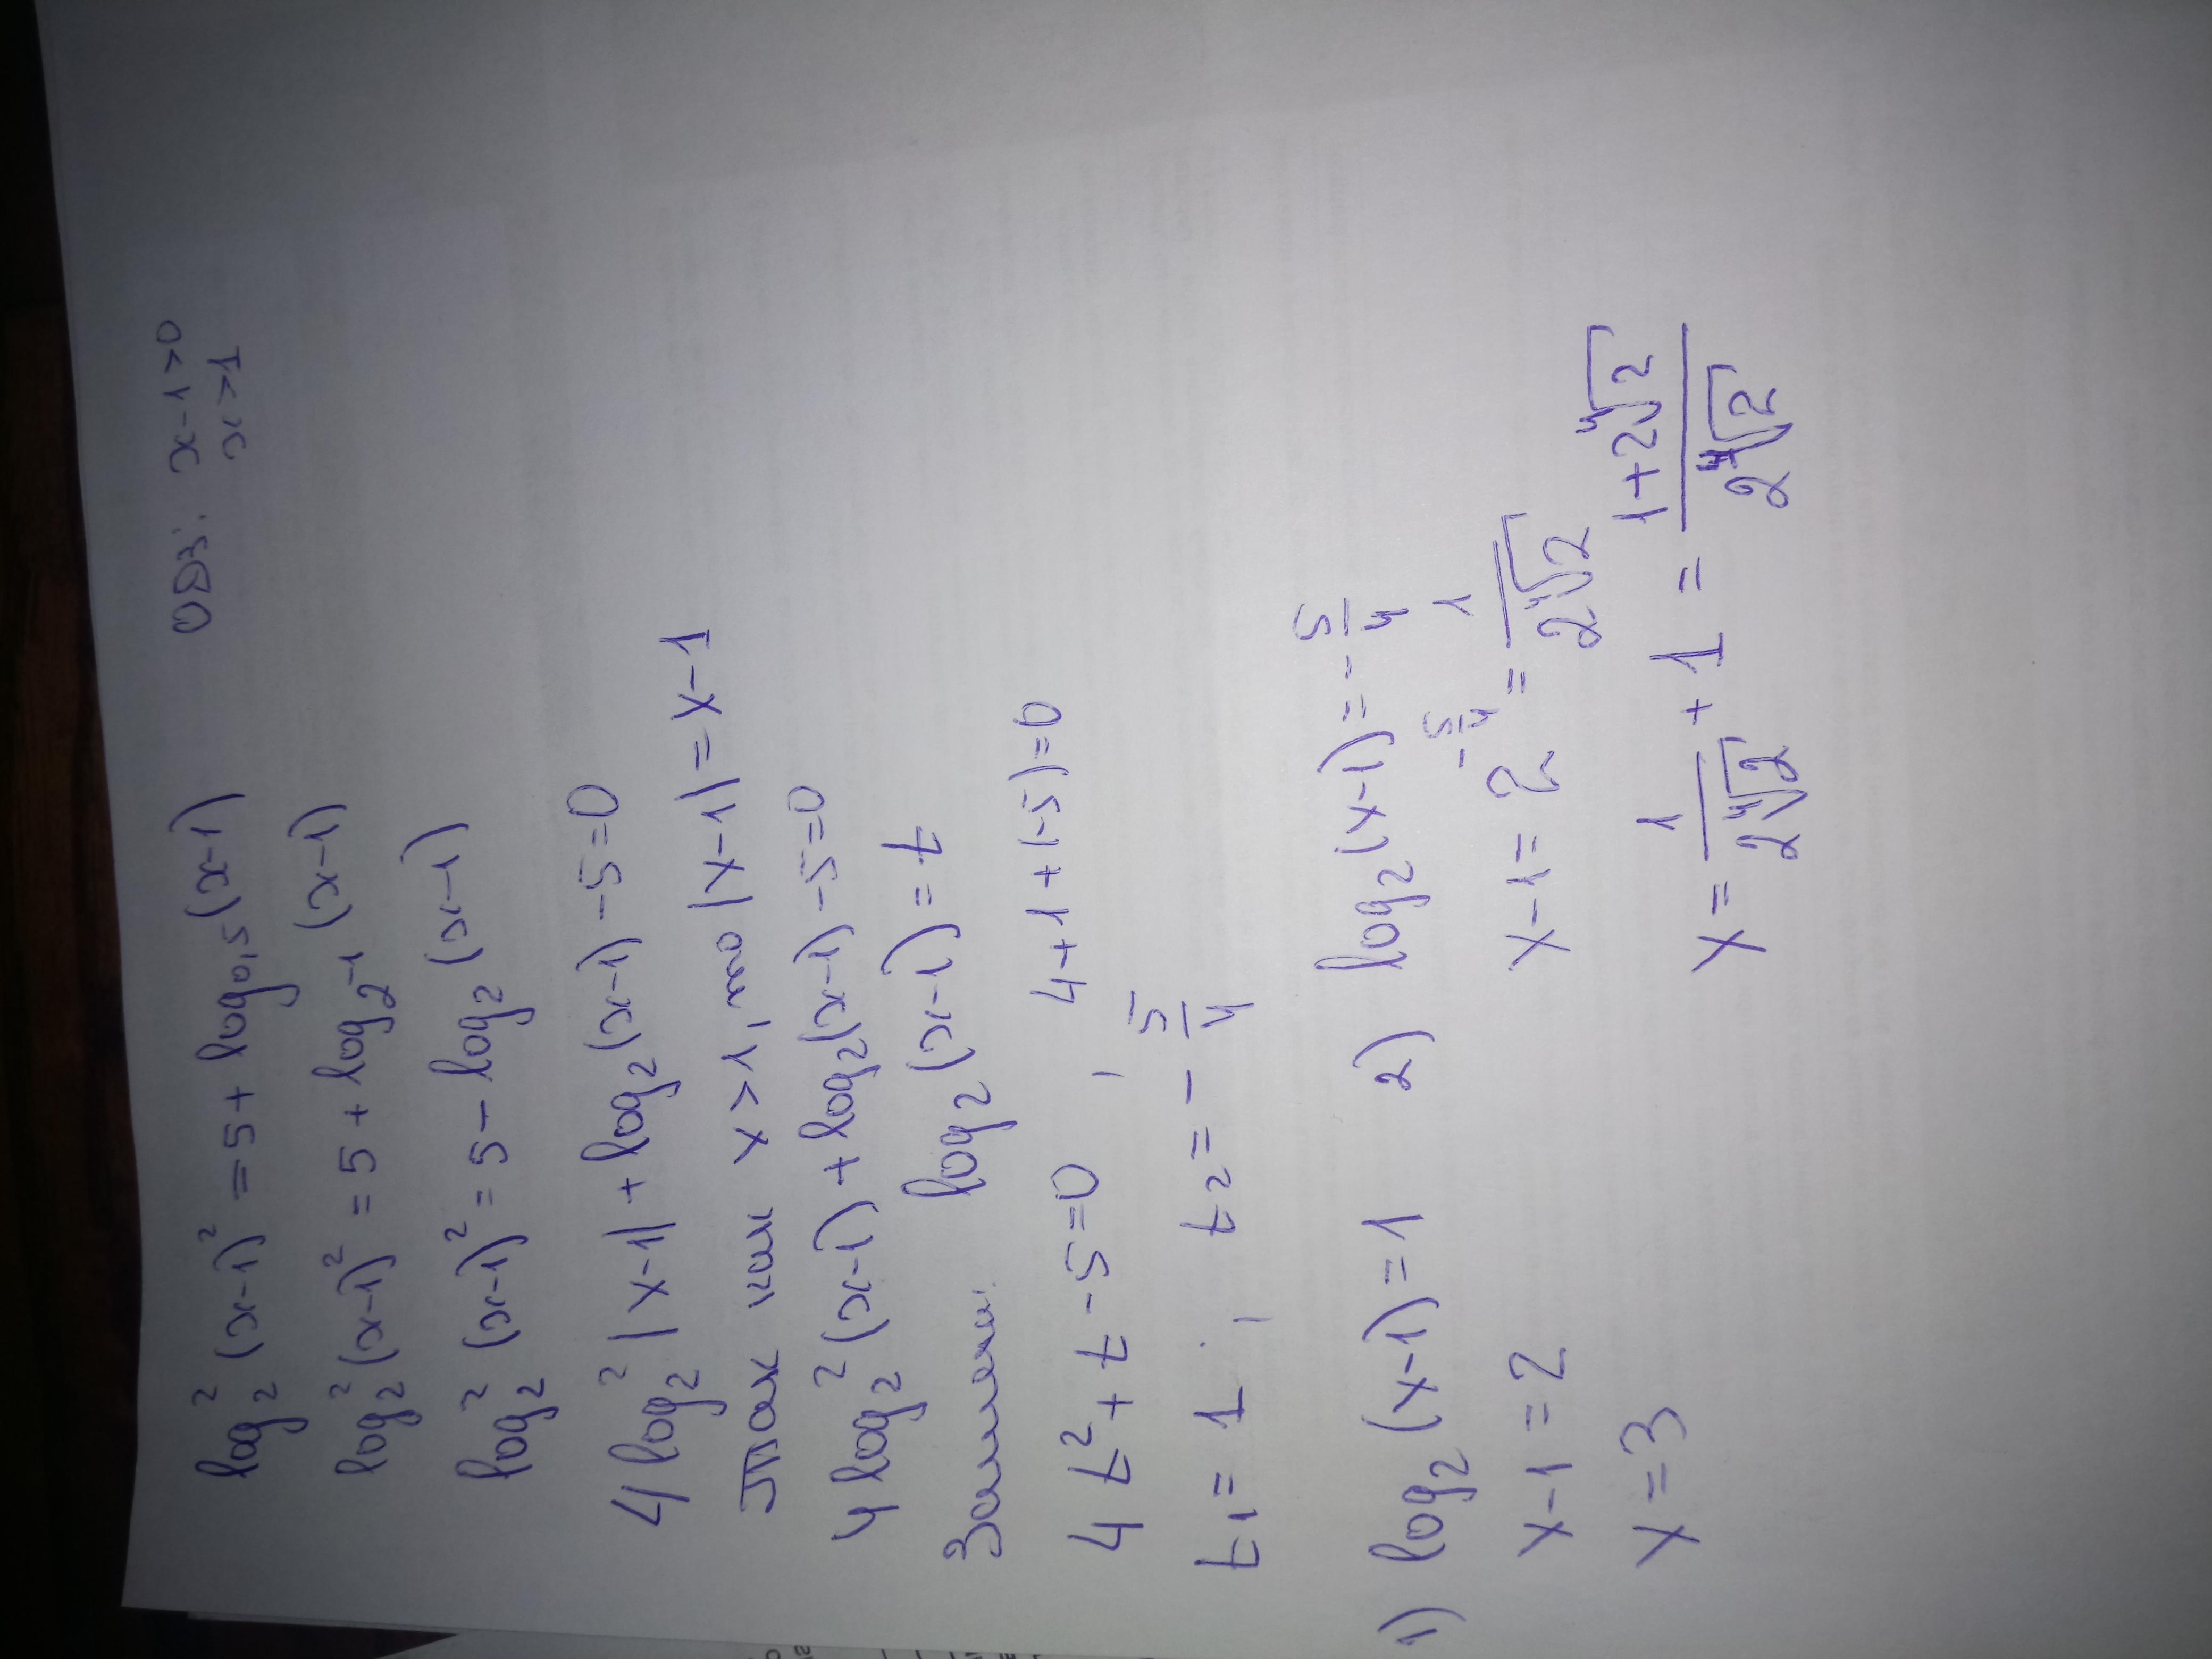 log₂²(x-1)² = 5 + log₀,₅(x-1) ОДЗ: x-1>0
x>1
log₂²(x-1)² = 5 + log₂₋₁(x-1)
log₂²(x-1)² = 5 - log₂(x-1)
4 log₂²|x-1| + log₂(x-1) - 5 = 0
Так как x>1, то |x-1| = x-1
4 log₂²(x-1) + log₂(x-1) - 5 = 0
Замена: log₂(x-1) = t
4t² + t - 5 = 0, 4+1+(-5)=0
t₁ = 1; t₂ = -5/4
1) log₂(x-1) = 1 2) log₂(x-1) = -5/4
x-1 = 2 x-1 = 2^(-5/4) = 1/(2⁴√2)
x = 3 x = 1/(2⁴√2) + 1 = (1+2⁴√2)/(2⁴√2)